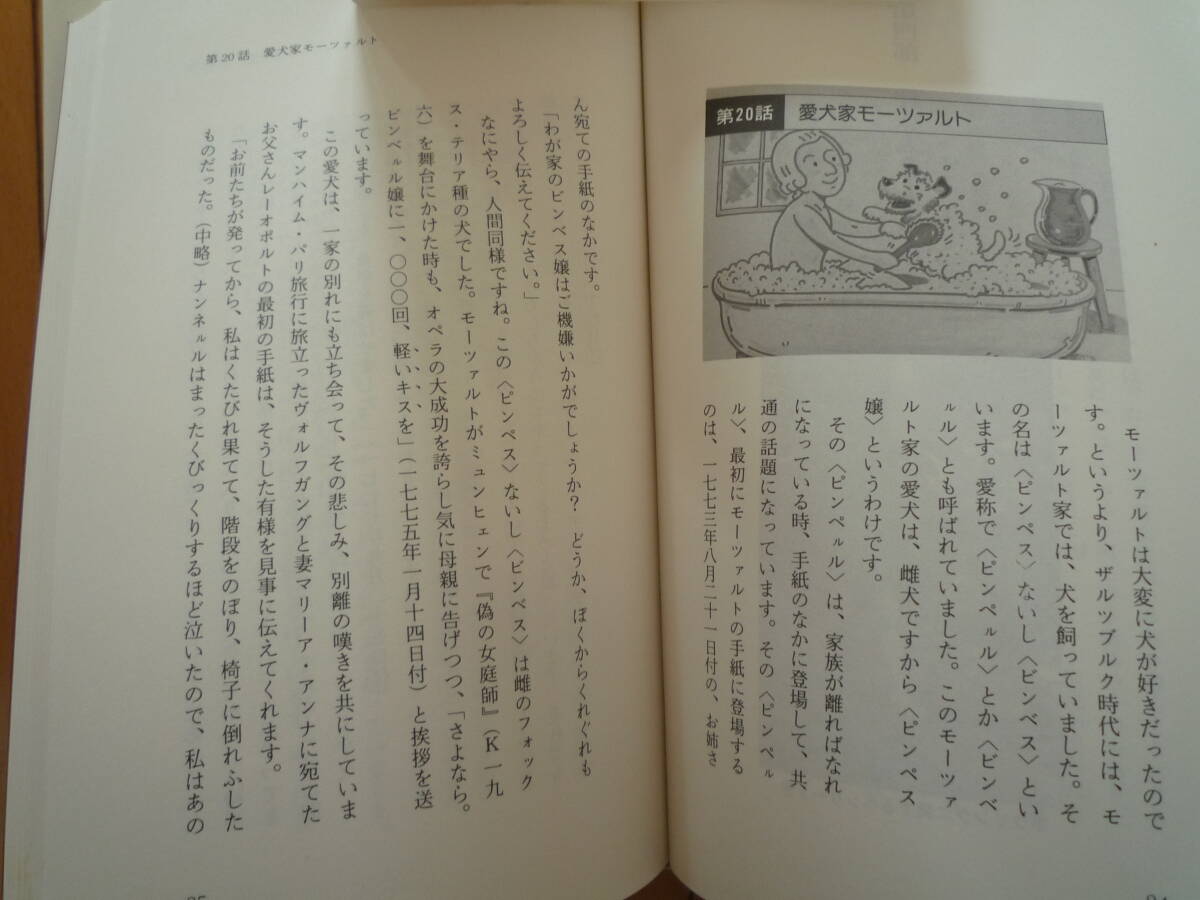 第20話 愛犬家モーツァルト
モーツァルトは大変に犬が好きだったので
す。というより、ザルツブルク時代には、モ
ーツァルト家では、犬を飼っていました。そ
の名は〈ピンペス〉ないし〈ビンベス〉とい
います。愛称で〈ピンペルル〉とか〈ビンベ
ルル〉とも呼ばれていました。このモーツァ
ルト家の愛犬は、雌犬ですから〈ピンペス
嬢〉というわけです。
その〈ピンペルル〉は、家族が離ればなれ
になっている時、手紙のなかに登場して、共
通の話題になっています。その〈ピンペル
ル〉、最初にモーツァルトの手紙に登場する
のは、一七七三年八月二十一日付の、お姉さ
第20話 愛犬家モーツァルト
ん宛ての手紙のなかです。
「わが家のピンペス嬢はご機嫌いかがでしょうか? どうか、ぼくからくれぐれも
よろしく伝えてください。」
なにやら、人間同様ですね。この〈ピンペス〉ないし〈ビンベス〉は雌のフォック
ス・テリア種の犬でした。モーツァルトがミュンヒェンで『偽の女庭師』(K一九
六)を舞台にかけた時も、オペラの大成功を誇らし気に母親に告げつつ、「さよなら。
ビンベルル嬢に一、〇〇〇回、軽いキスを」(一七七五年一月十四日付)と挨拶を送
っています。
この愛犬は、一家の別れにも立ち会って、その悲しみ、別離の嘆きを共にしていま
す。マンハイム・パリ旅行に旅立ったヴォルフガングと妻マリーア・アンナに宛てた
お父さんレーオポルトの最初の手紙は、そうした有様を見事に伝えてくれます。
「お前たちが発ってから、私はくたびれ果てて、階段をのぼり、椅子に倒れふした
ものだった。(中略)ナンネルルはまったくびっくりするほど泣いたので、私はあの